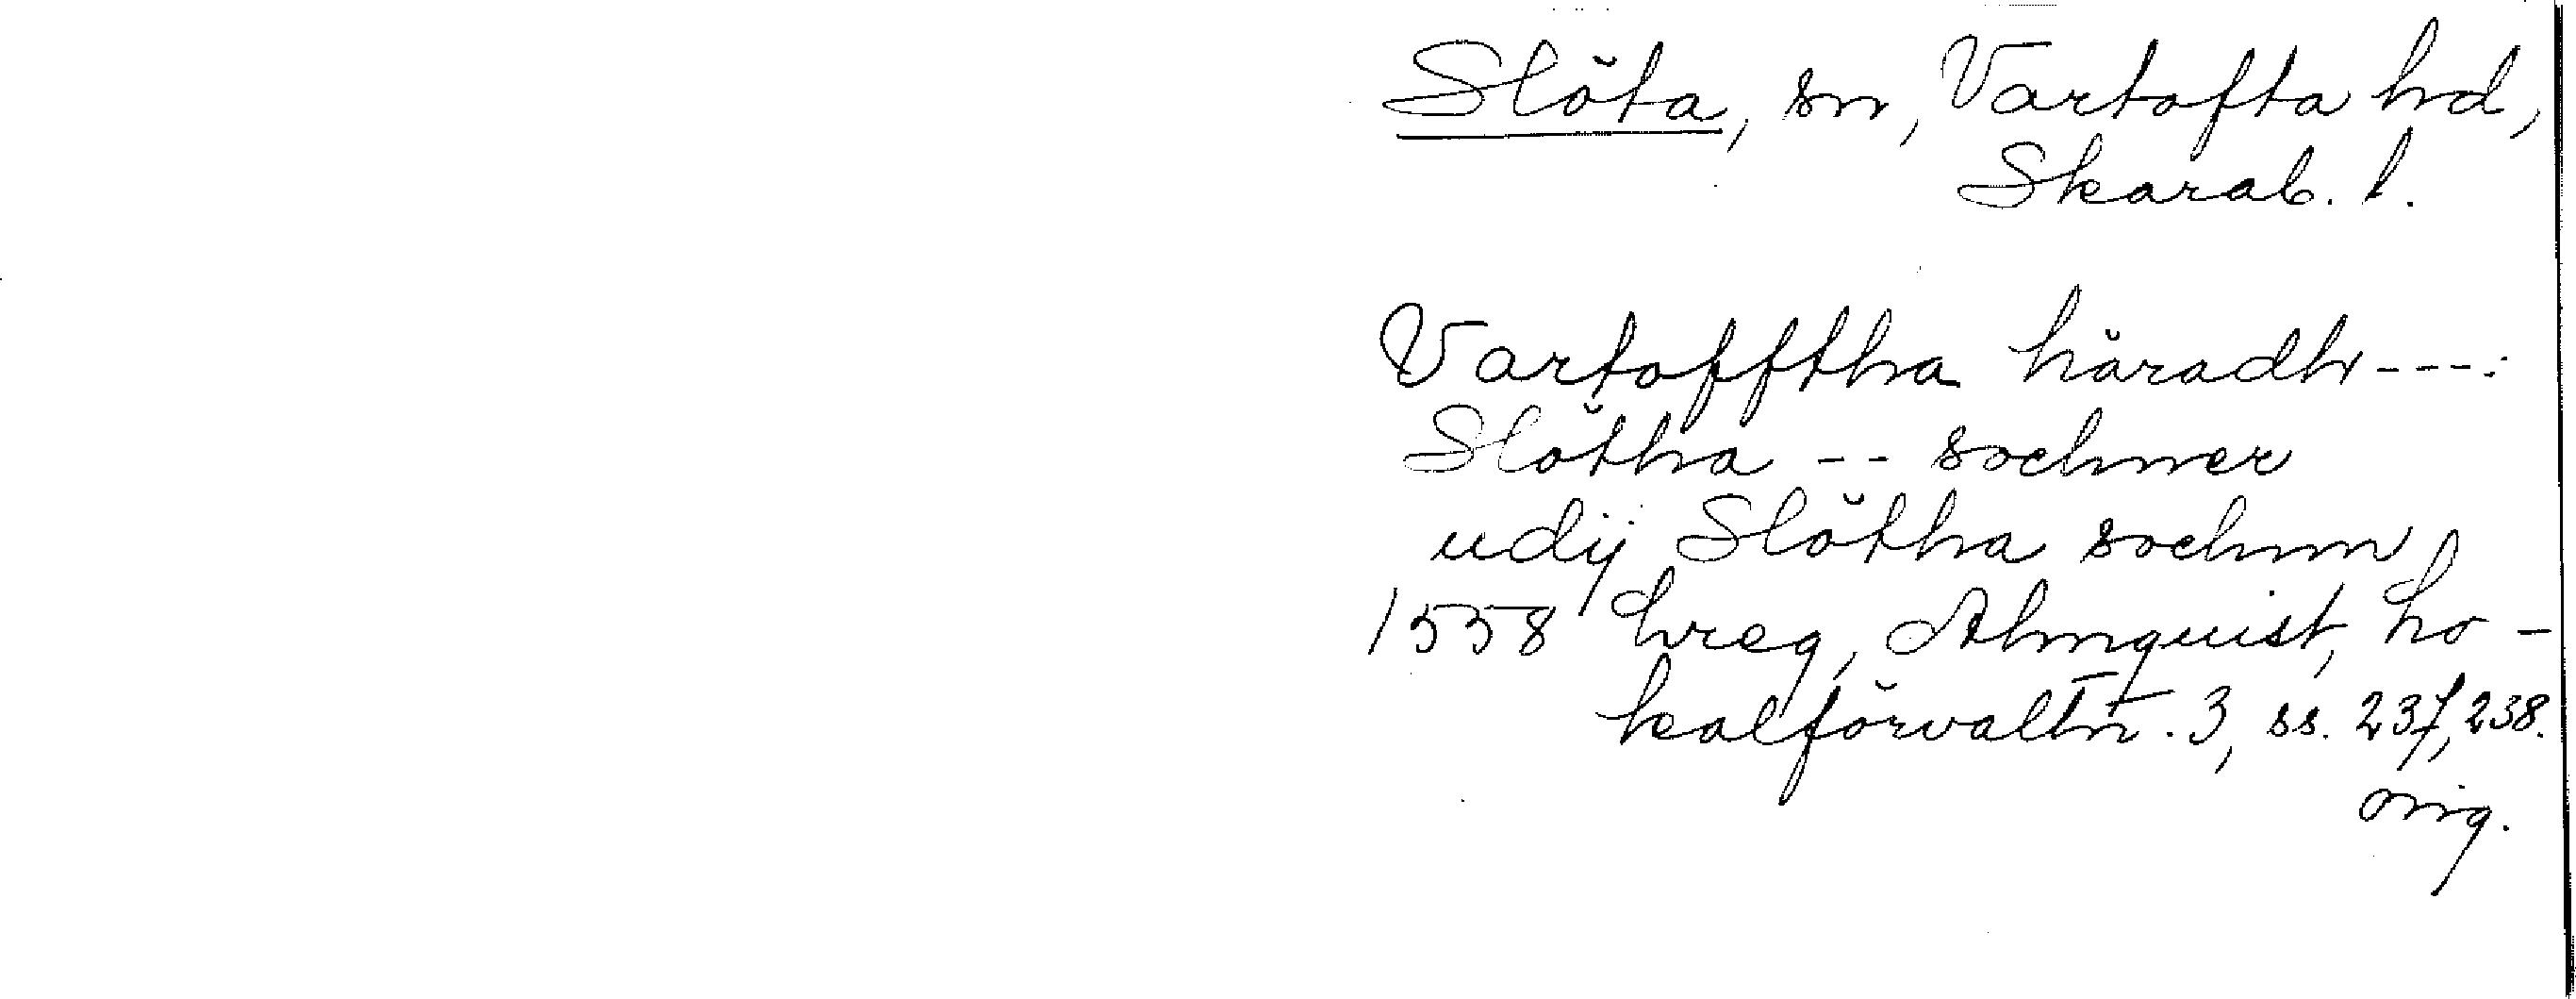 Slöta, sn, Vartofta hd,
Skarab. l.
Vartofftha häradh ---:
Slötha -- sochner
udij Slötha sochnn
1558 hreg, Almquist, Lo-
kalförvaltn. 3, ss. 237, 238.
orig.